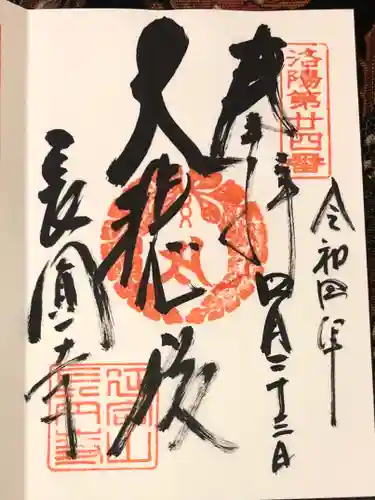 洛陽第廿四番
奉拝
令和四年
四月二十二日
大悲殿
長圓寺